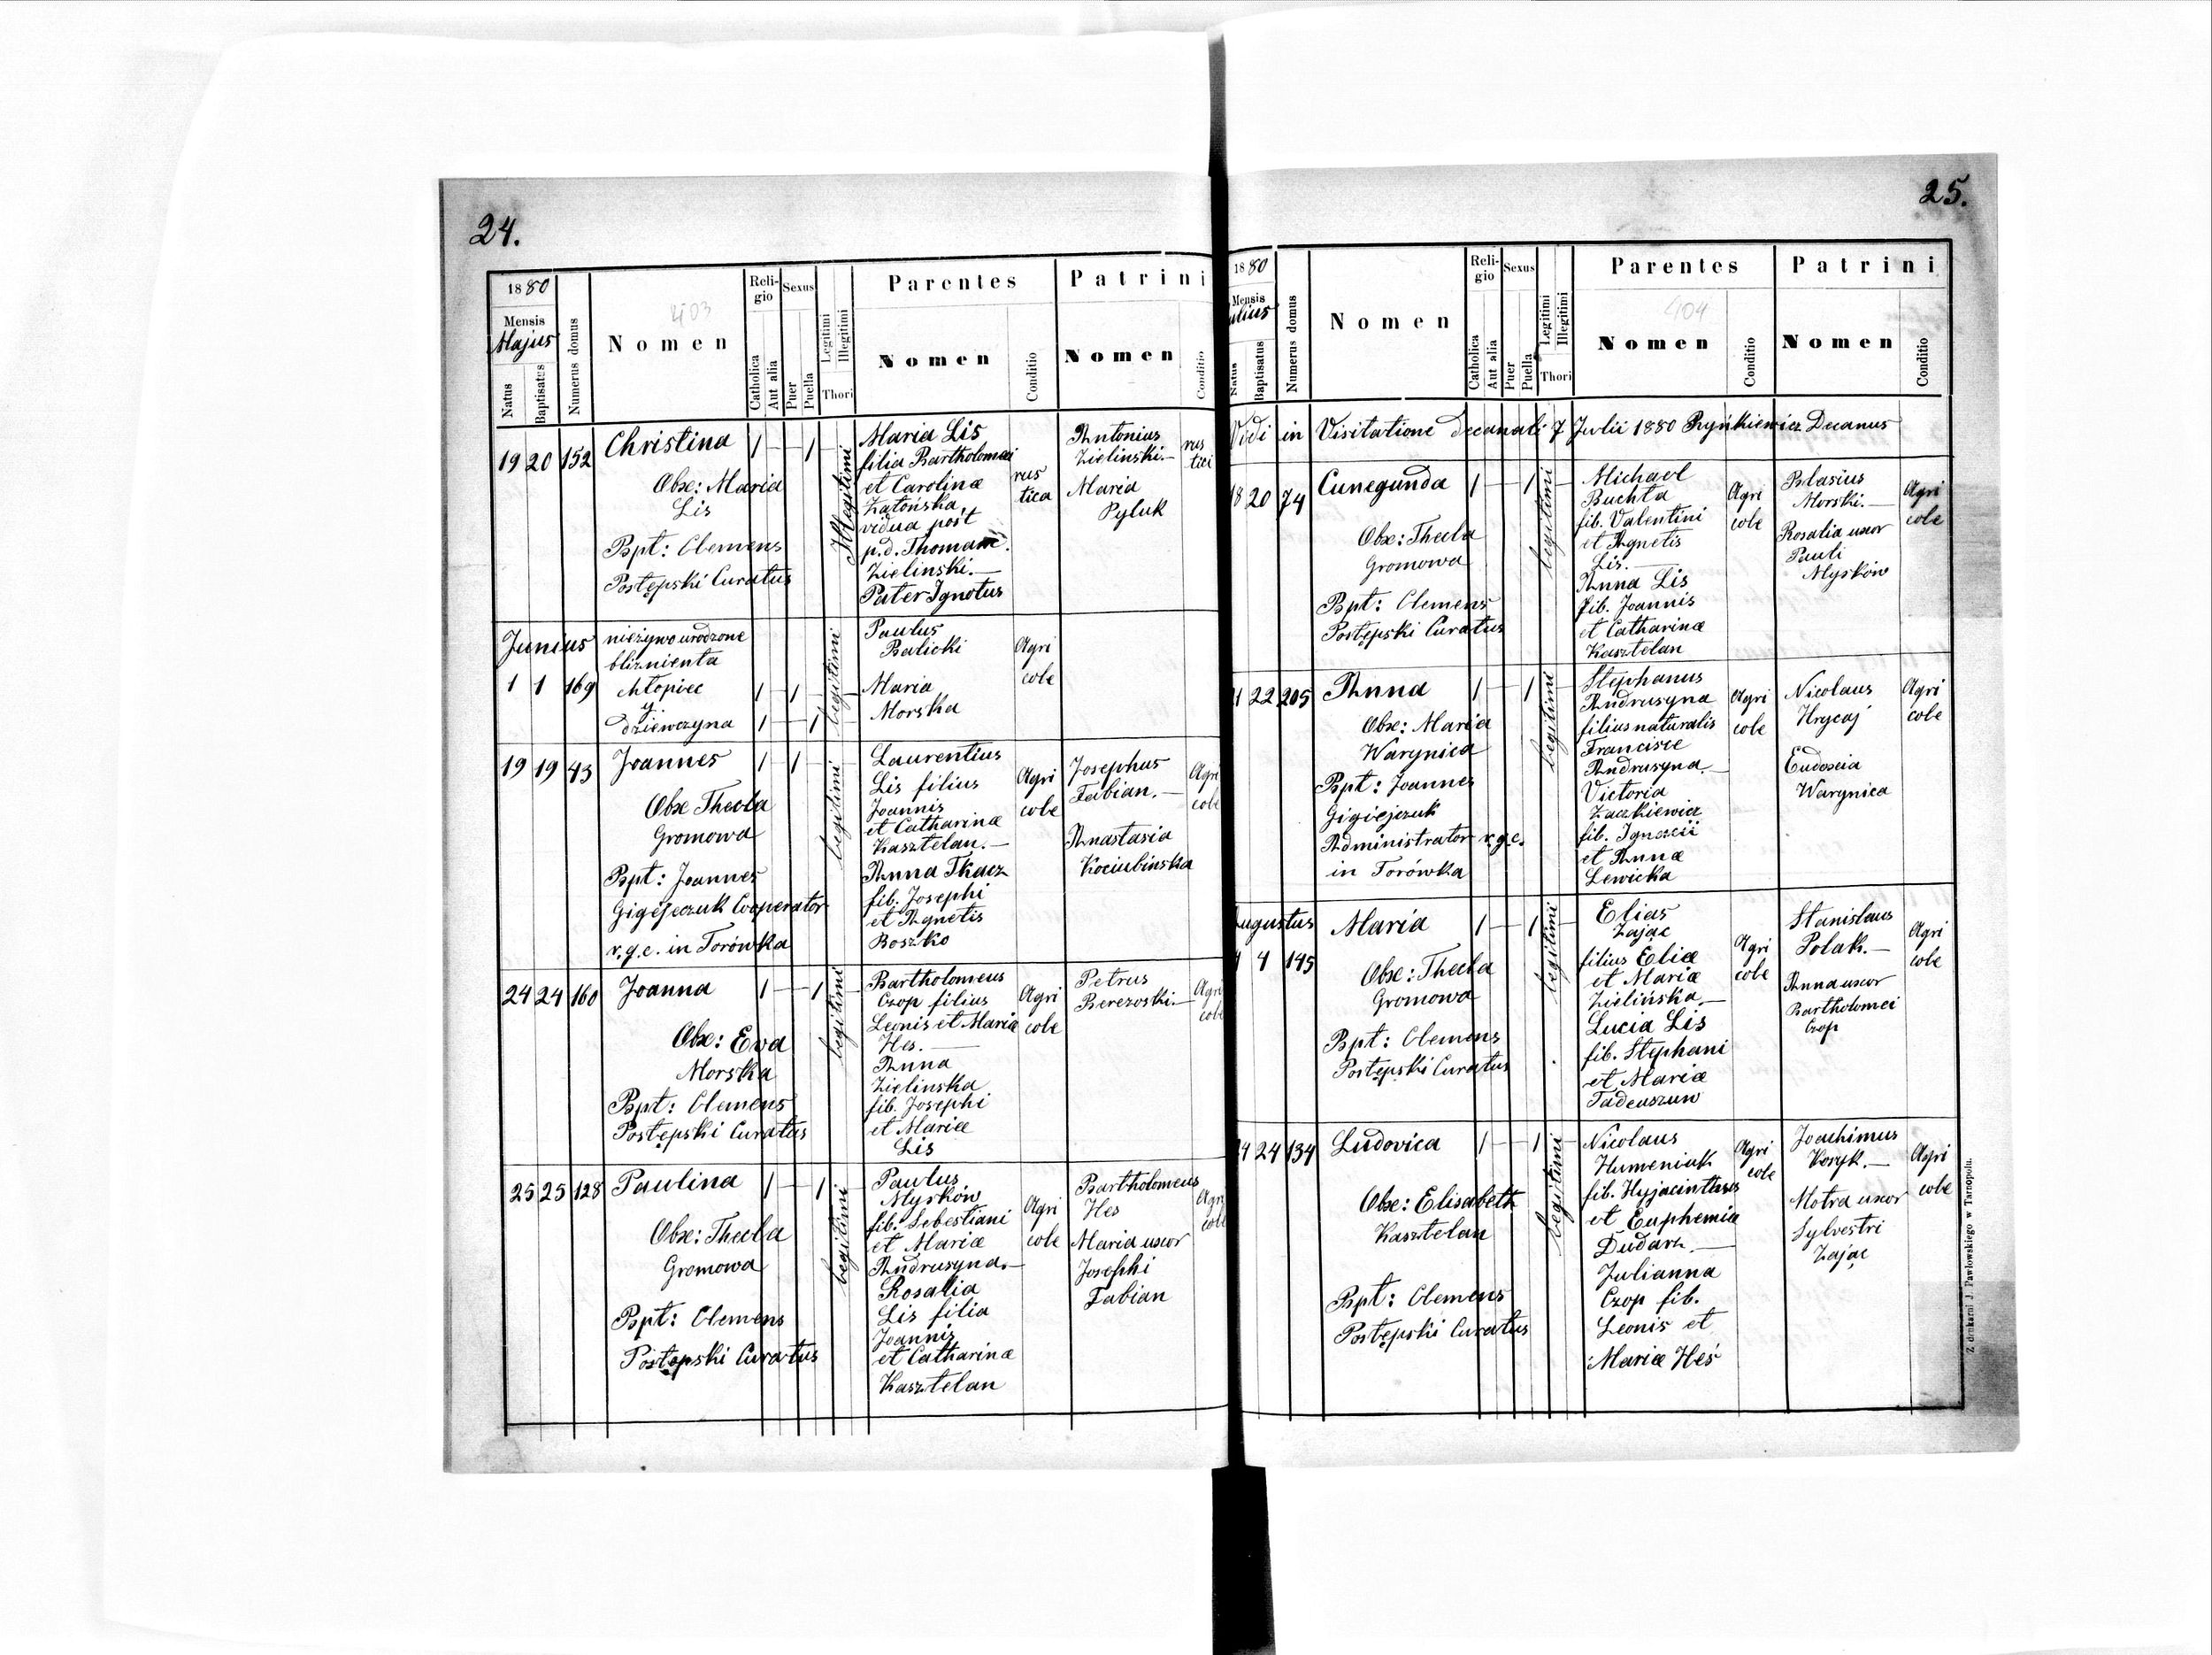 24.
1880
Mensis
Majus
Natus
Baptisatus
Numerus domus
403
Nomen
Religio
Catholica
Aut alia
Sexus
Puer
Puella
Legitimi
Illegitimi
Thori
Parentes
Nomen
Conditio
Patrini
Nomen
Conditio
19 20 152
Christina
Obse: Maria
Lis
Bpt: Clemens
Postępski Curatus
Illegitimi
Maria Lis
filia Bartholomæi
et Carolinæ
Zatońska
vidua post
p.d. Thomam
Zielinski.—
Pater Ignotus
rus
tica
Antonius
Zielinski.—
Maria
Pyluk
rus
tici
Junius
1 1 169
nieżywo urodzone
bliznienta
chłopiec
y
dziewczyna
legitimi
Paulus
Balicki
Maria
Morska
Agri
colæ
19 19 43
Joannes
Obse Thecla
Gromowa
Bpt: Joannes
Gigiejczuk Cooperator
r.g.c. in Torówka
legitimi
Laurentius
Lis filius
Joannis
et Catharinæ
Kasztelan.—
Anna Tkacz
fil. Josephi
et Agnetis
Boszko
Agri
colæ
Josephus
Fabian.—
Anastasia
Kociubinska
Agri
colæ
24 24 160
Joanna
Obse: Eva
Morska
Bpt: Clemens
Postępski Curatus
legitimi
Bartholomeus
Czop filius
Leonis et Mariæ
Hes.—
Anna
Zielinska
fil. Josephi
et Mariæ
Lis
Agri
colæ
Petrus
Berezoski.—
Agri
colæ
25 25 128
Paulina
Obse: Thecla
Gromowa
Bpt: Clemens
Postępski Curatus
legitimi
Paulus
Myśków
fil. Sebestiani
et Mariæ
Andrusyna.—
Rosalia
Lis filia
Joannis
et Catharinæ
Kasztelan
Agri
colæ
Bartholomeus
Hes
Maria uxor
Josephi
Fabian
Agri
colæ
25.
1880
Mensis
Julius
Natus
Baptisatus
Numerus domus
Nomen
Religio
Catholica
Aut alia
Sexus
Puer
Puella
Legitimi
Illegitimi
Thori
Parentes
404
Nomen
Conditio
Patrini
Nomen
Conditio
Vidi in Visitatione decanali 7 Julii 1880 Ryńkiewicz Decanus
18 20 74
Cunegunda
Obse: Thecla
Gromowa
Bpt: Clemens
Postępski Curatus
legitimi
Michael
Buchta
fil. Valentini
et Agnetis
Lis.—
Anna Lis
fil. Joannis
et Catharinæ
Kasztelan
Agri
colæ
Blasius
Morski.—
Rosalia uxor
Pauli
Myśków
Agri
colæ
22 205
Anna
Obse: Maria
Warynica
Bpt: Joannes
Gigiejczuk
Administrator r.g.c.
in Torówka
legitimi
Stephanus
Andrusyna
filius naturalis
Franciscæ
Andrusyna.—
Victoria
Zaczkiewicz
fil. Ignacii
et Annæ
Lewicka
Agri
colæ
Nicolaus
Hrycaj
Eudoxia
Warynica
Agri
colæ
Augustus
4 145
Maria
Obse: Thecla
Gromowa
Bpt: Clemens
Postępski Curatus
legitimi
Elias
Zając
filius Eliæ
et Mariæ
Zielińska.—
Lucia Lis
fil. Stephani
et Mariæ
Tadeuszuw
Agri
colæ
Stanislaus
Polak.—
Anna uxor
Bartholomei
Czop
Agri
colæ
24 134
Ludovica
Obse: Elisabeth
Kasztelan
Bpt: Clemens
Postępski Curatus
legitimi
Nicolaus
Humeniuk
fil. Hyjacinthus
et Euphemiæ
Dudarz.—
Julianna
Czop fil.
Leonis et
Mariæ Heś
Agri
colæ
Joachimus
Koryk.—
Motra uxor
Sylvestri
Zając
Agri
colæ
Z drukarni J. Pawłowskiego w Tarnopolu.